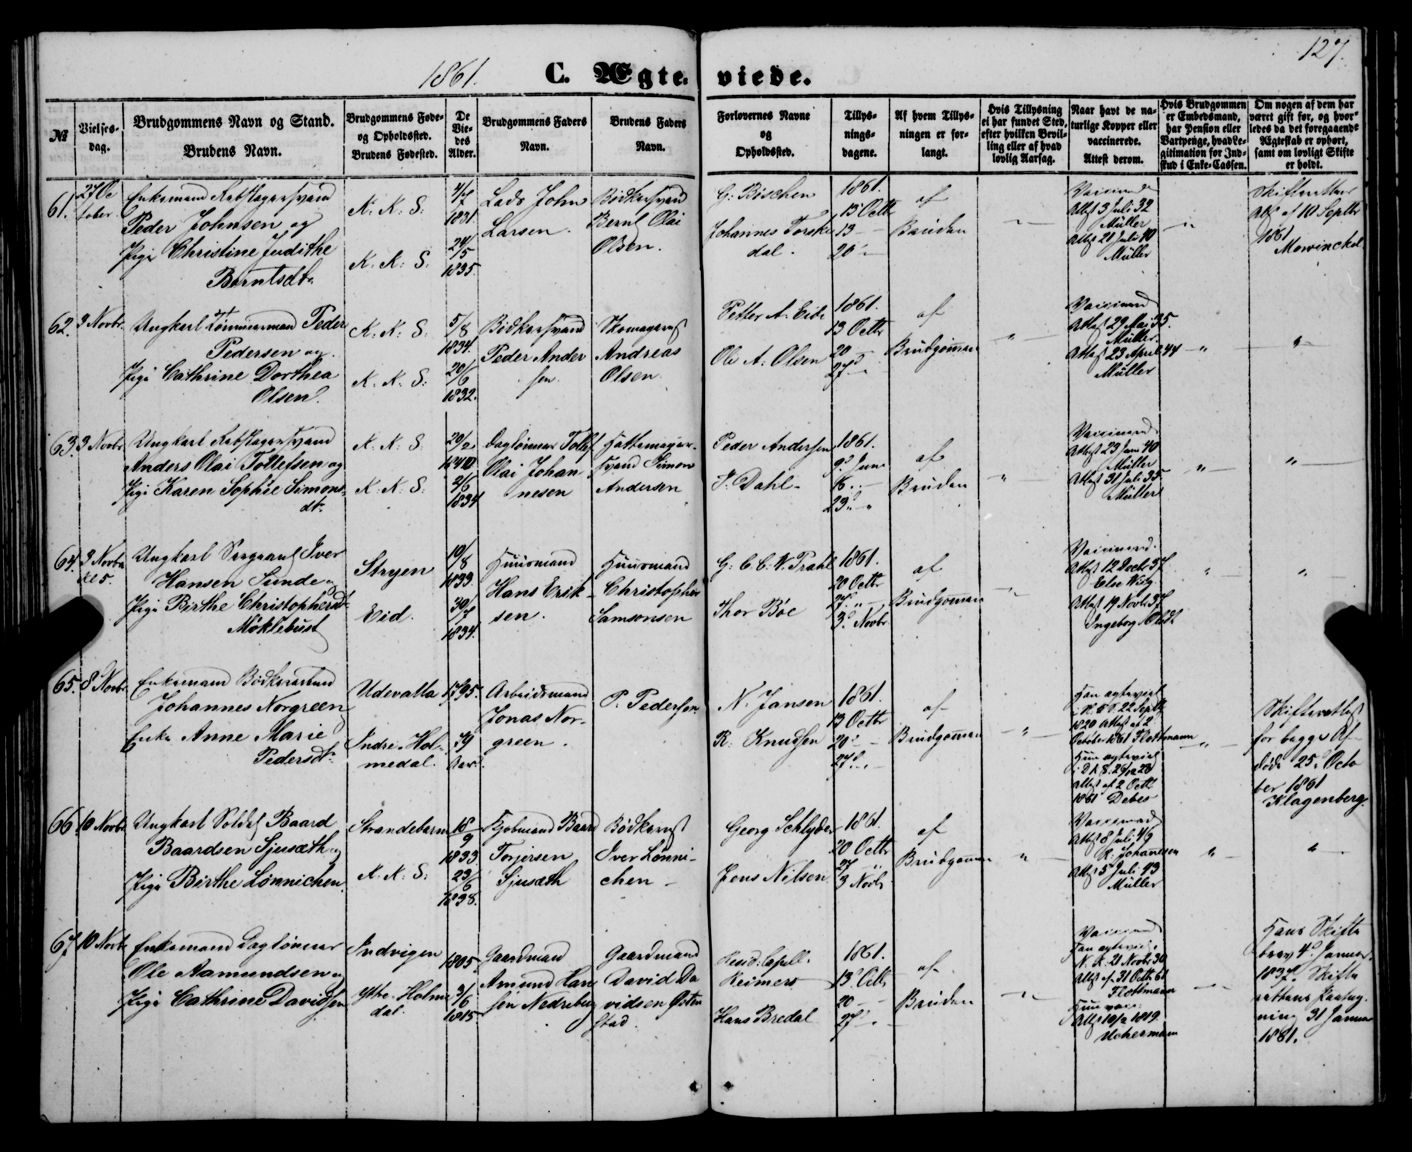 127.
1861. C. Ægteviede.
№
Vielses-
dag.
Brudgommens Navn og Stand.
Brudens Navn.
Brudgommens Føde-
og Opholdssted.
Brudens Fødested.
De
Vie-
des
Alder.
Brudgommens Faders
Navn.
Brudens Faders
Navn.
Forlovernes Navne
og
Opholdssted.
Tillys-
nings-
dagene.
Af hvem Tillys-
ningen er for-
langt.
Hvis Tillysning
ei har fundet Sted,
efter hvilken Bevil-
ling eller af hvad
lovlig Aarsag.
Naar havt de na-
turlige Kopper eller
vaccinerede.
Attest derom.
Hvis Brudgommen
er Embedsmand,
har Pension eller
Vartpenge, hvad Le-
gitimation for Ind-
skud i Enke-Cassen.
Om nogen af dem har
været gift før, og hvor-
ledes da det foregaaende
Ægteskab er ophørt,
samt om lovligt Skifte
er holdt.
61. 27 Oc
tober
Enkemand Rebslagersvend
Peder Johnsen og
Pige Christine Judithe
Berntsdtr
N. K. S.
N. K. S.
1831
24/5
1835.
Lods John
Larsen.
Bødkersvend
Bernt Olai
Olsen.
G. Böschen
Johannes Torske
dal.
1861.
13 Octb
13 —
20 —
af
Bruden
Vaccinered
Attest 3 Juli 32
Müller
Attest 21 Juli 40
Müller
Skifterettens
Att. af 10 Septbr
1861
Mowinckel
62. 3 Novbr.
Ungkarl Tømmermand Peder
Pedersen og
Pige Cathrine Dorthea
Olsen.
N. K. S.
N. K. S.
5/8
1834.
20/6
1832.
Bødkersvend
Peder Ander
sen.
Skomagerst
Andreas
Olsen.
Petter A. Eide
Ole A. Olsen
1861.
13 Octb
20
27
af
Brudgommen
Vaccinered
Attest 29 Mai 35.
Müller
Attest 23 April 44
Müller
63. 3 Novbr
Ungkarl Rebslagersvend
Anders Olai Tollefsen og
Pige Karen Sophie Simons
dtr
N. K. S.
N. K. S.
20/2
1840
2/6
1834
Daglønner Tollef
Olai Johan
nesen
Hattemager-
svend Simon
Andersen
Peder Andersen
F. Dahl
1861.
9 Juni
16 —
23 —
af
Bruden
Vaccinered
Attest 23 Juni 40
Müller
Attest 31 Juli 35
Müller
64. 3 Novbr
Ungkarl Sergeant Iver
Hansen Sunde og
Pige Birthe Christophersdtr
Møklebust
Stryen
Eid.
10/8
1833.
30/7
1834.
Huusmand
Hans Erik-
sen.
Huusmand
Christopher
Samsonsen
G. C. C. W. Prahl
Thor Böe
1861.
20 Octb
27 —
3 Novbr
af
Brudgommen
Vaccinered
Attest 12 Decbr 37
Attest 19 Novbr 37
Ingeborg
65. 8 Novbr.
Enkemand Bødkersvend
Johannes Norgreen
Enke Anne Marie
Pedersdtr.
Udevalla
Indre Hol-
medal.
1795.
59
Aar.
Arbeidsmand
Jonas Nor-
green.
P. Pedersen
N. Jansen
R. Knudsen
1861
13 Octb
20 —
27 —
af
Brudgommen
Han ægteviet
22 Septbr
1820 Attest af 2
October 1861 Flottmann
Hun ægteviet
Attest af 2 Octb
1861 Debes
Skifterettens
for begge Af-
døde 25 Octo
ber 1861
Klagenberg
66 10 Novbr.
Ungkarl Soldat Baard
Baardsen Sjusæth og
Pige Birthe Lønnichen
Strandebarm
N. K. S.
18/9
1833
23/6
1838.
Baard
Torjersen
Sjusæth
Bødkerst
Iver Lønni-
chen —
Georg Schlyder
Jens Nilsen
1861.
20 Octb
27
3 Novbr
af
Brudgommen
Vaccinered
Attest 8 Juli 49
Johannesen
Attest 5 Juli 43
Müller
67. 10 Novbr
Enkemand Dagløner
Ole Aamundsen og
Pige Cathrine Davidsen
Indvigen
Ytre Holme
dal.
1805.
3/6
1815
Gaardmand
Amund Han
sen
Gaardmand
David Da
vidsen
stad
Reimers
Hans Bredal
1861.
13 Octb
20 —
27 —
af
Bruden
Vaccinered
Han ægteviet i
N. K. 21 Novbr 30
Attest af 31 Octb 61
Flottmann
Hun vacc.
1819
Uchermann
Hans Skifte
brev 4 Januar
1837. Skifte
rettens Paateg
ning 31 Januar
1861.